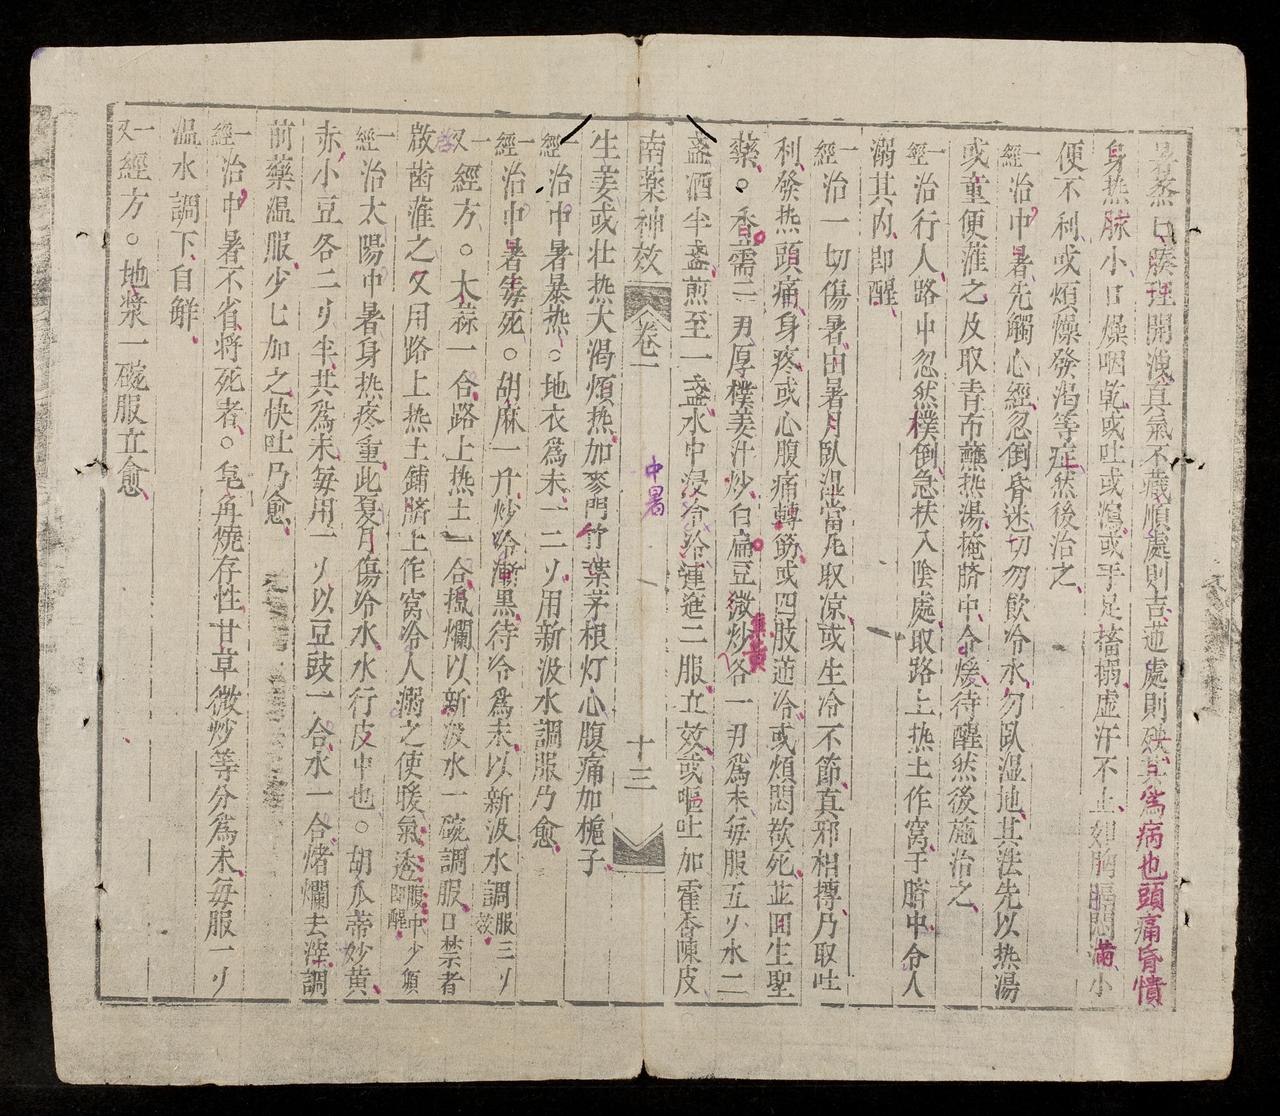 暑蒸口腠理開洩真氣不藏順處則吉逆處則殃其為病也頭痛昏憒
身热脉小口燥咽乾或吐或瀉或手足搐搦虛汗不止如胸膈悶滿小
便不利或煩燥發渴等症然後治之
一經治中暑先觸心經忽倒昏迷切勿飲冷水勿臥湿地其法先以热湯
或童便灌之及取青布蘸热湯掩臍中令煖待醒然後施治之
一經治行人路中忽然樸倒急扶入陰處取路上热土作窩于臍中令人
溺其内即醒
一經治一切傷暑由暑月臥湿當風取凉或生冷不節真邪相摶乃取吐
利發热頭痛身疼或心腹痛轉筋或四肢逆冷或煩悶欲死並囬生聖
藥○香需二刄厚樸姜汁炒白扁豆微炒各一刄爲末每服五刂水二
黄
盞酒半盞煎至一盞水中浸令冷連進二服立效或嘔吐加霍香陳皮
南藥神效 卷一 十三
中暑
生姜或壮热大渴煩热加麥門竹葉茅根灯心腹痛加梔子
一經治中暑暴热○地衣爲末一二刂用新汲水調服乃愈
一經治中暑毎死○胡麻一升炒冷漸黒待冷爲末以新汲水調服三刂效
一又經方○大蒜一合路上热土一合搗爛以新汲水一碗調服口禁者
啟齒灌之又用路上热土鋪臍上作窩令人溺之使暖氣透腹中少頃即醒
一經治太陽中暑身热疼重此夏月傷冷水水行皮中也○胡瓜蒂炒黄
赤小豆各二刂半共爲末每用一刂以豆豉一合水一合煑爛去滓調
前藥温服少匕加之快吐乃愈
一經治中暑不省将死者○皂角燒存性甘草微炒等分爲末每服一刂
温水調下自觧
一又經方○地漿一碗服立愈